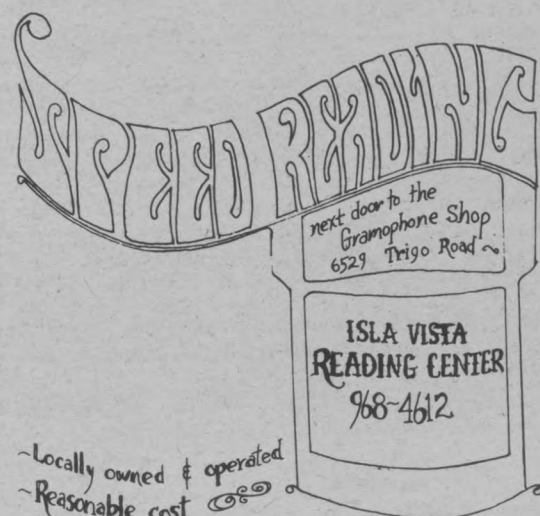 SPEED READING
next door to the
Gramophone Shop
6529 Trigo Road ~
ISLA VISTA
READING CENTER
968~4612
~Locally owned & operated
~Reasonable cost